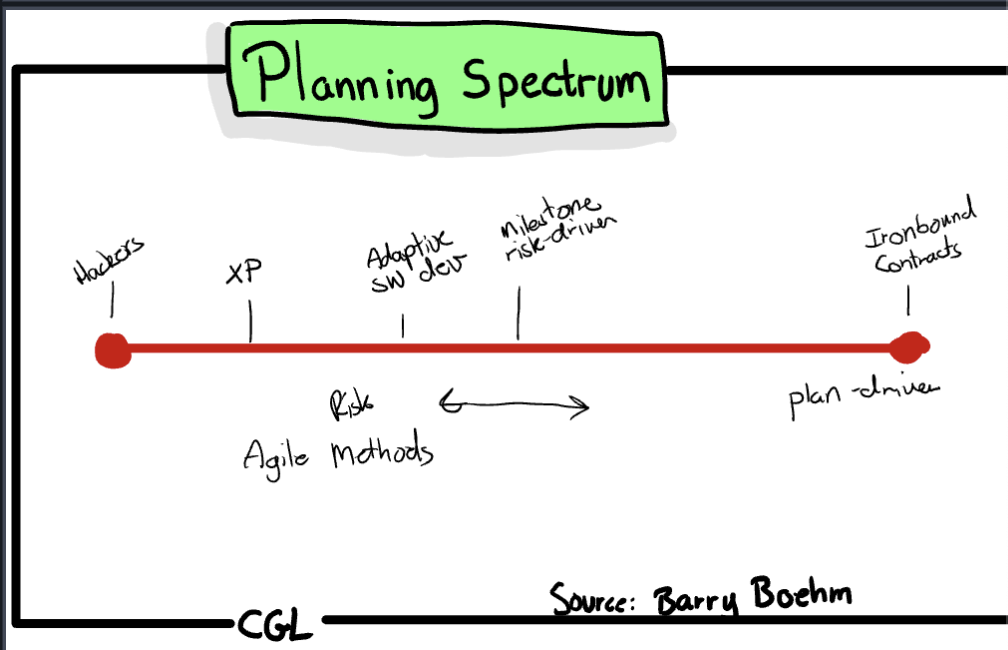 Planning Spectrum
Hackers
XP
Adaptive
sw dev
milestone
risk-driven
Ironbound
Contracts
Risk
Agile Methods
plan-driven
Source: Barry Boehm
CGL